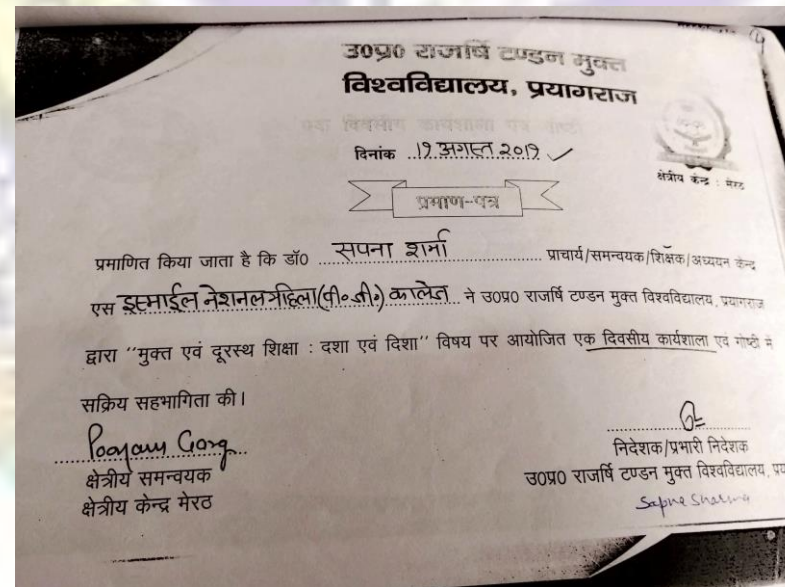 उ०प्र० राजर्षि टण्डन मुक्त
विश्वविद्यालय, प्रयागराज
एक दिवसीय कार्यशाला एवं गोष्ठी
दिनांक ..19 अगस्त 2019. ✓
क्षेत्रीय केन्द्र : मेरठ
प्रमाण-पत्र
प्रमाणित किया जाता है कि डॉ० ...सपना शर्मा................. प्राचार्य/समन्वयक/शिक्षक/अध्ययन केन्द्र
एस इस्माईल नेशनल महिला (पी० जी०) कालेज.. ने उ०प्र० राजर्षि टण्डन मुक्त विश्वविद्यालय, प्रयागराज
द्वारा "मुक्त एवं दूरस्थ शिक्षा : दशा एवं दिशा" विषय पर आयोजित एक दिवसीय कार्यशाला एवं गोष्ठी में
सक्रिय सहभागिता की।
Poonam Garg
क्षेत्रीय समन्वयक
क्षेत्रीय केन्द्र मेरठ
निदेशक/प्रभारी निदेशक
उ०प्र० राजर्षि टण्डन मुक्त विश्वविद्यालय, प्र
Sapna Sharma